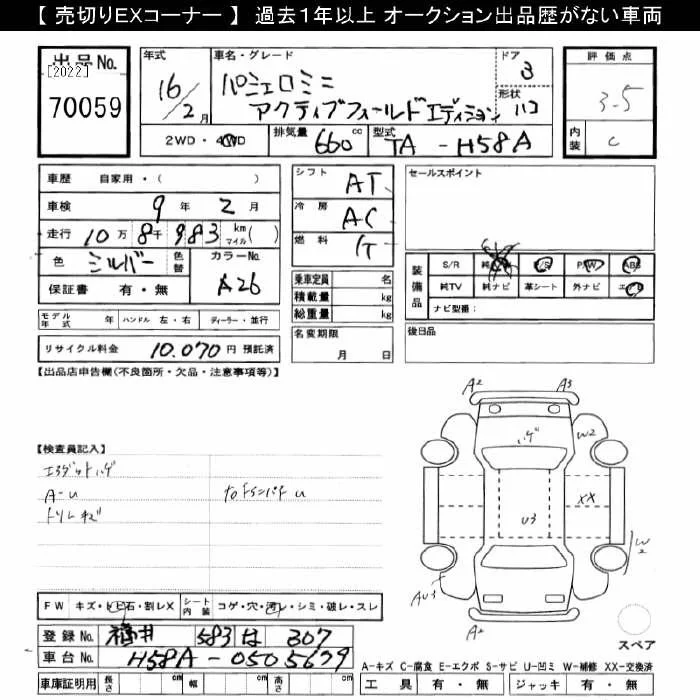 【 売切りEXコーナー 】 過去１年以上 オークション出品歴がない車両
出品No.
[2022]
70059
年式
16/2月
車名・グレード
パジェロミニ
アクティブフィールドエディション
ドア
3
形状
ハコ
評価点
3-5
内装
C
2WD・4WD
排気量
660 cc
型式
TA-H58A
車歴 自家用・( )
車検 9年 2月
走行 10万 8千 983 km マイル( )
色 シルバー 色替
カラーNo.
A26
保証書 有・無
モデル年式 年 ハンドル 左・右 ディーラー・並行
リサイクル料金 10.070円 預託済
シフト AT
冷房 AC
燃料 G
乗車定員 名
積載量 kg
総重量 kg
名変期限
月 日
セールスポイント
装備品
S/R P/S P/W ABS
純TV 純ナビ 革シート 外ナビ
ナビ型番：
後日品
【出品店申告欄(不良箇所・欠品・注意事項等)】
【検査員記入】
A-U
A2 A3
ハゲ
W2
XX
U3
W2
AU3
A2
スペア
FW キズ・トビ石・割レX
シート内装 コゲ・穴・汚レ・シミ・破レ・スレ
登録No. 福井 583 は 307
車台No. H58A-0505679
車庫証明用 長さ cm 幅 cm 高さ cm
A-キズ C-腐食 E-エクボ S-サビ U-凹ミ W-補修 XX-交換済
工具 有・無 ジャッキ 有・無